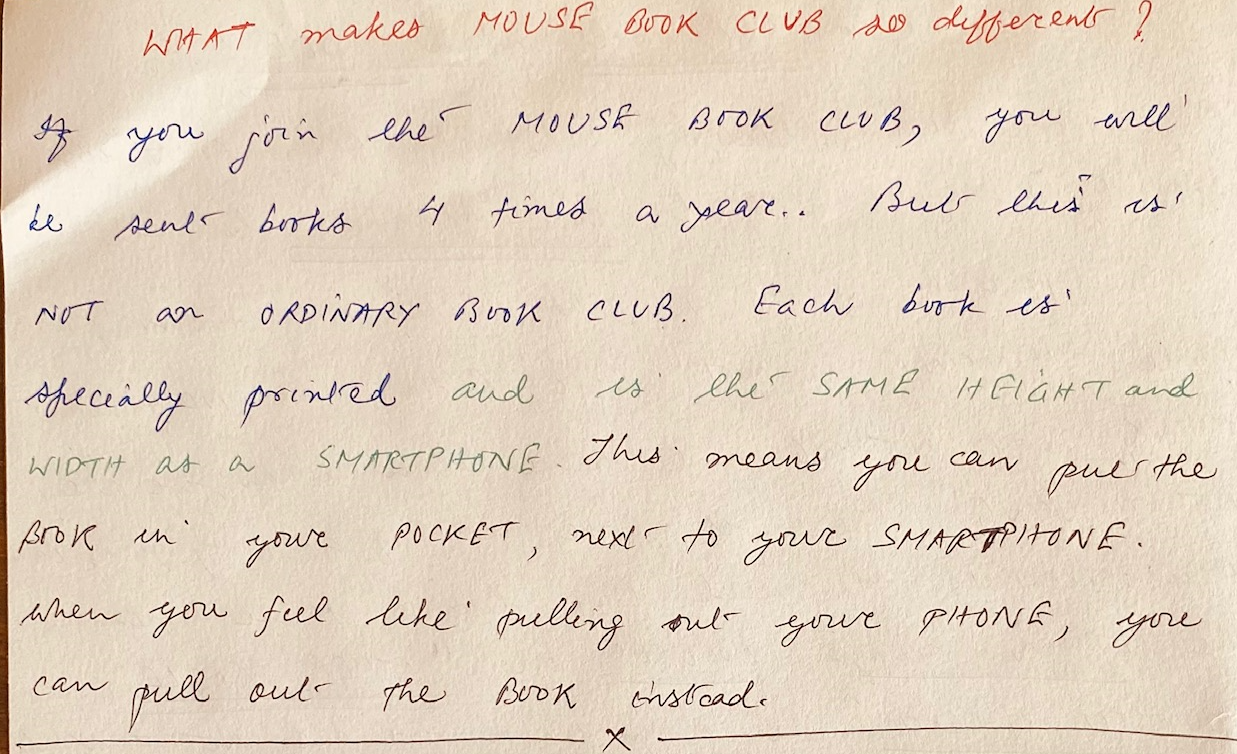 WHAT makes MOUSE BOOK CLUB so different?
If you join the MOUSE BOOK CLUB, you will
be sent books 4 times a year.. But this is
NOT an ORDINARY BOOK CLUB. Each book is
specially printed and is the SAME HEIGHT and
WIDTH as a SMARTPHONE. This means you can put the
BOOK in your POCKET, next to your SMARTPHONE.
when you feel like pulling out your PHONE, you
can pull out the BOOK instead.
X